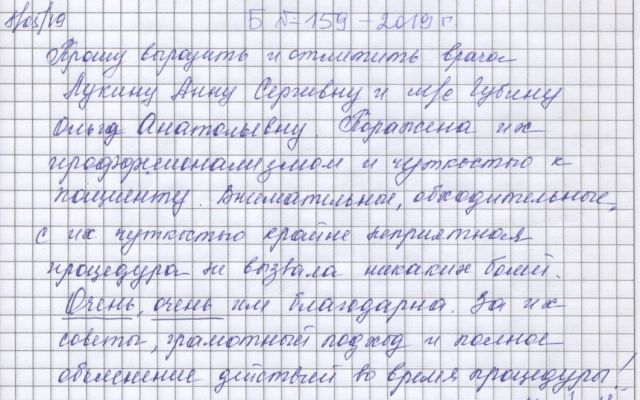 8/05/19
Б № 159 - 2019 г.
Прошу выразить и отметить врача
Лукину Анну Сергеевну и м/с Губину
Ольгу Анатольевну. Поражена их
профессионализмом и чуткостью к
пациенту. Внимательные, обходительные,
с их чуткостью крайне неприятная
процедура не вызвала никаких болей.
Очень, очень им благодарна. За их
советы, грамотный подход и полное
объяснение действий во время процедуры!